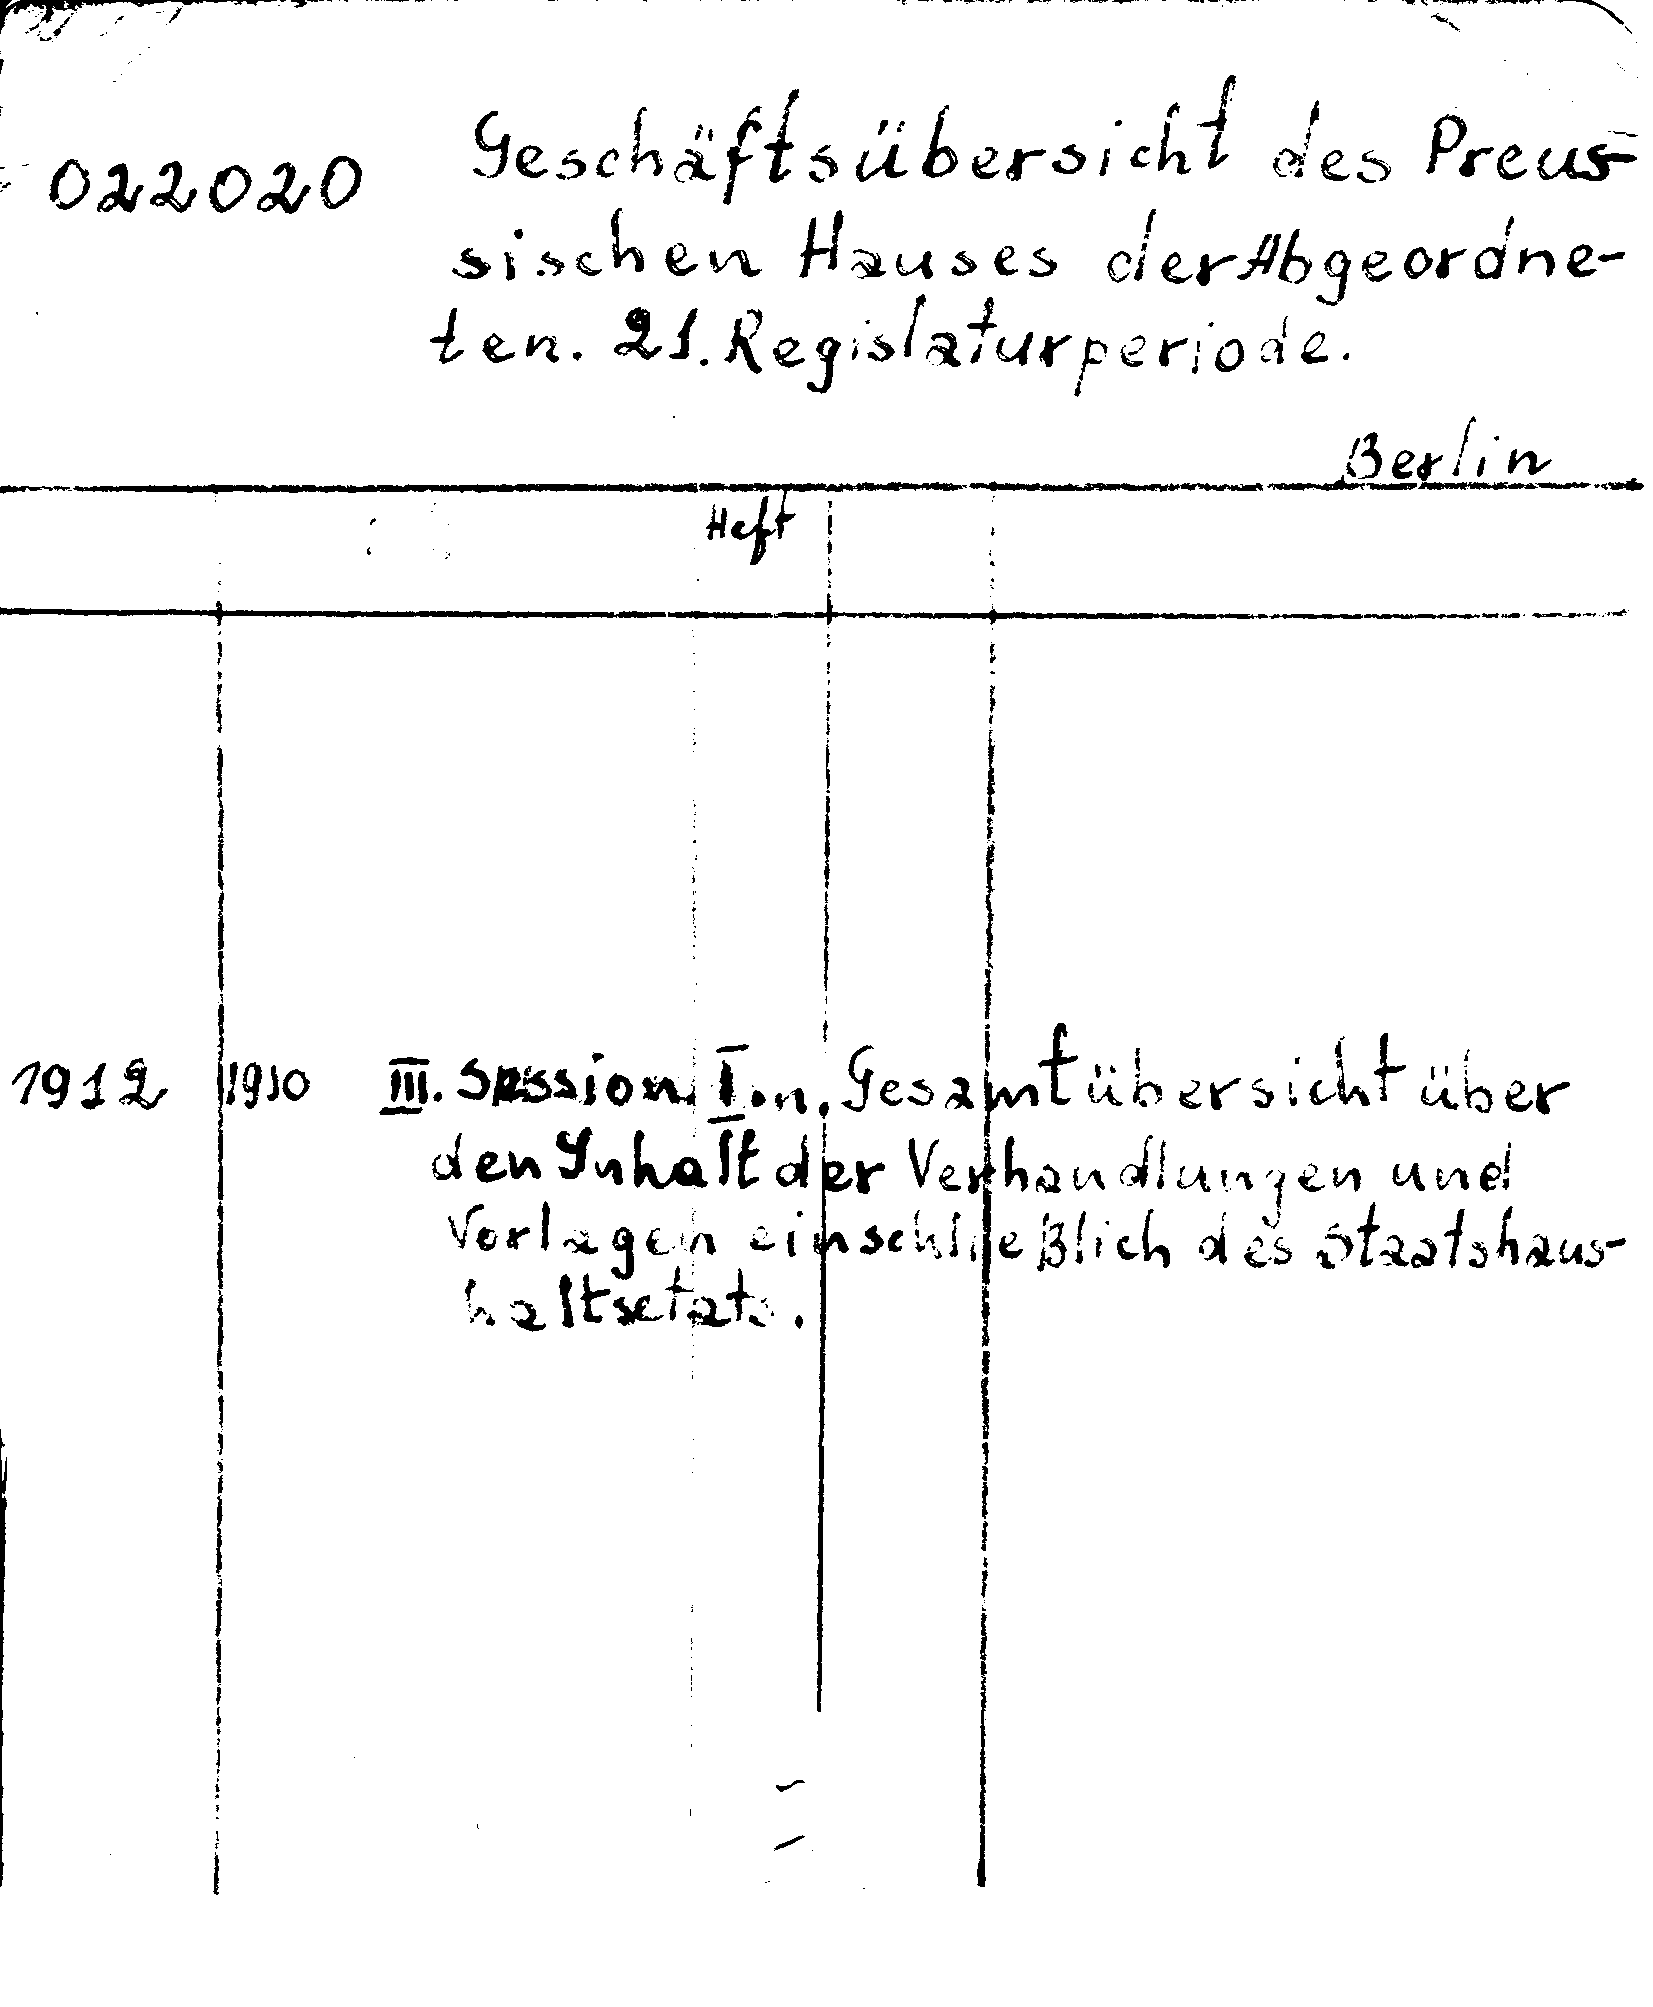 022020 Geschäftsübersicht des Preus-
sischen Hauses der Abgeordne-
ten. 21. Regislaturperiode.
Berlin
Heft
1912 1910 III. Session I. n. Gesamtübersicht über
den Inhalt der Verhandlungen und
Vorlagen einschließlich des Staatshaus-
haltsetats.